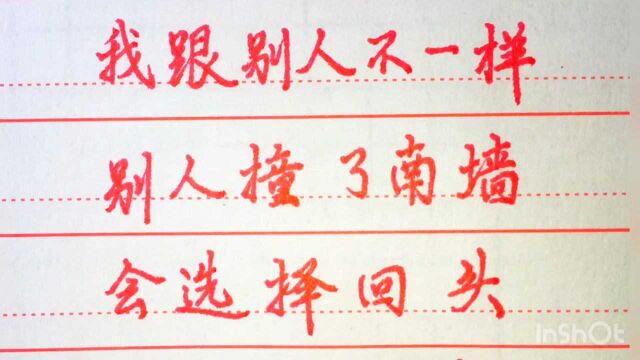 我跟别人不一样
别人撞了南墙
会选择回头
InShOt